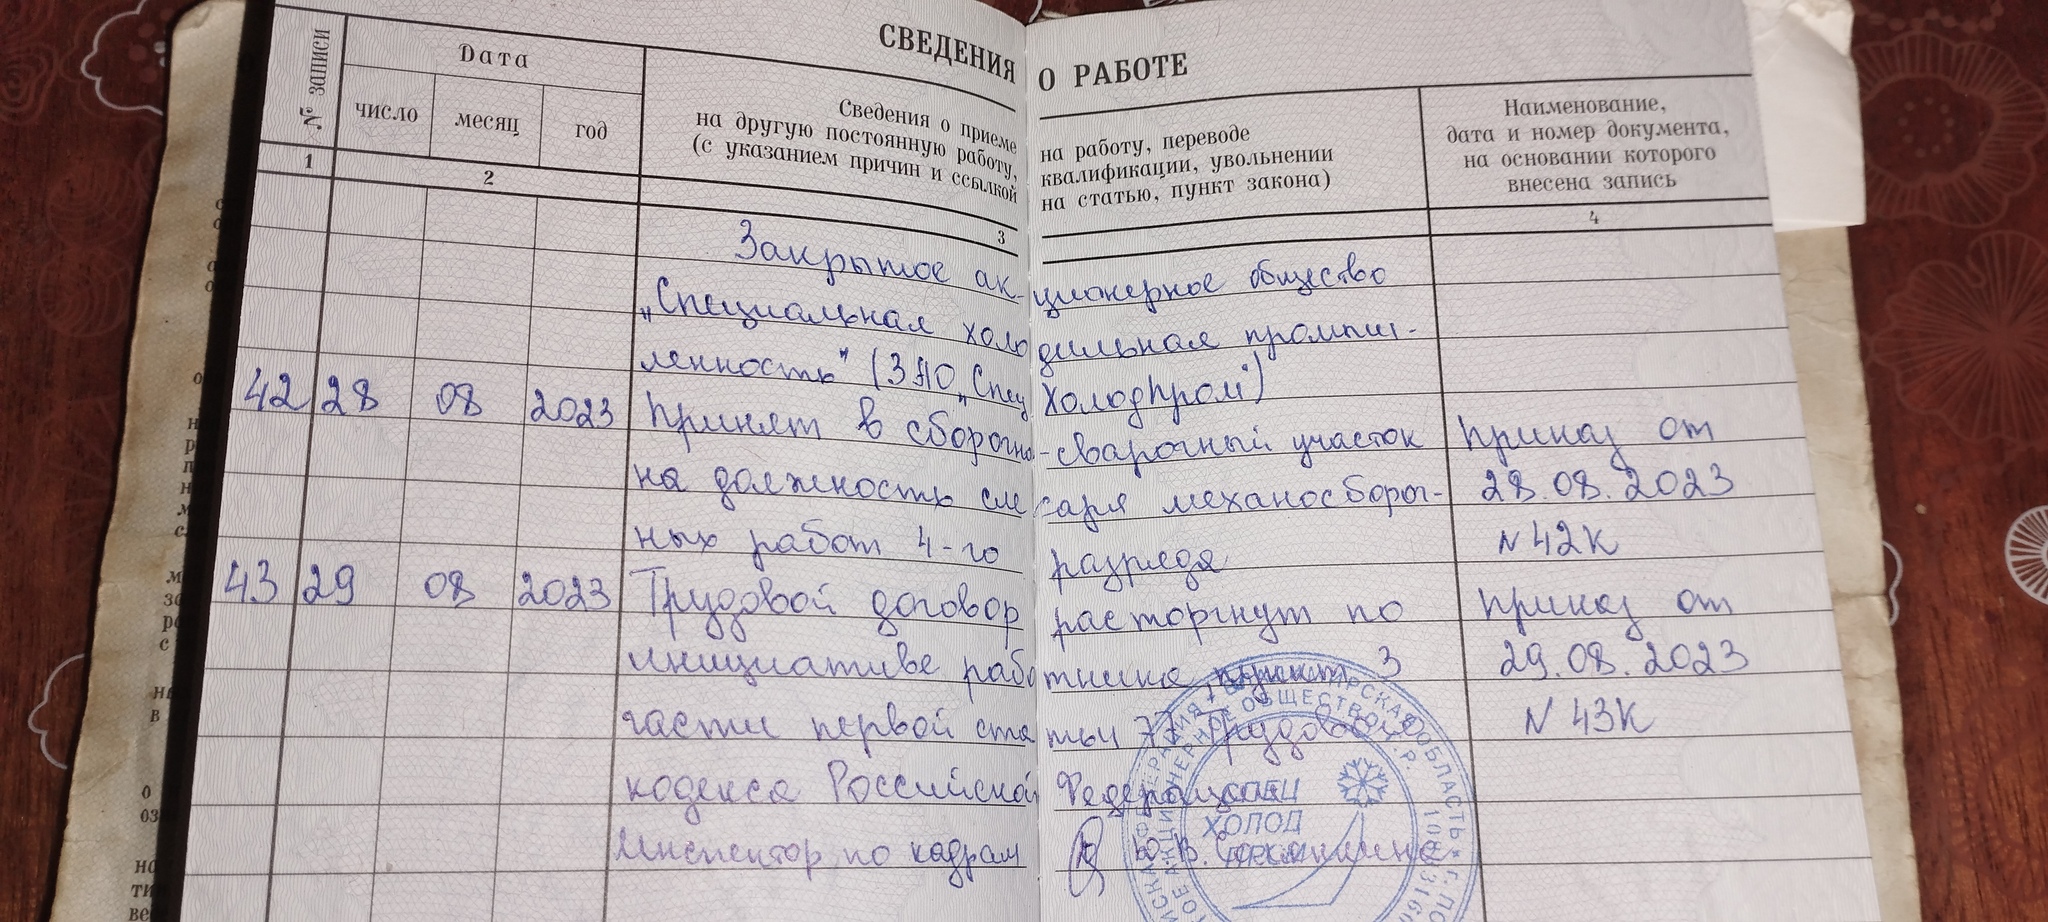 СВЕДЕНИЯ О РАБОТЕ
№ записи
Дата
число месяц год
Сведения о приеме на работу, переводе
на другую постоянную работу, квалификации, увольнении
(с указанием причин и ссылкой на статью, пункт закона)
Наименование,
дата и номер документа,
на основании которого
внесена запись
1 2 3 4
Закрытое акционерное общество
„Специальная холодильная промыш-
ленность" (ЗАО „СпецХолодПром")
42 28 08 2023 Принят в сборочно-сварочный участок Приказ от
на должность слесаря механосбороч- 28.08.2023
ных работ 4-го разряда N 42К
43 29 08 2023 Трудовой договор расторгнут по Приказ от
инициативе работника, пункт 3 29.08.2023
части первой статьи 77 Трудового N 43К
кодекса Российской Федерации
Инспектор по кадрам
СПЕЦ
ХОЛОД